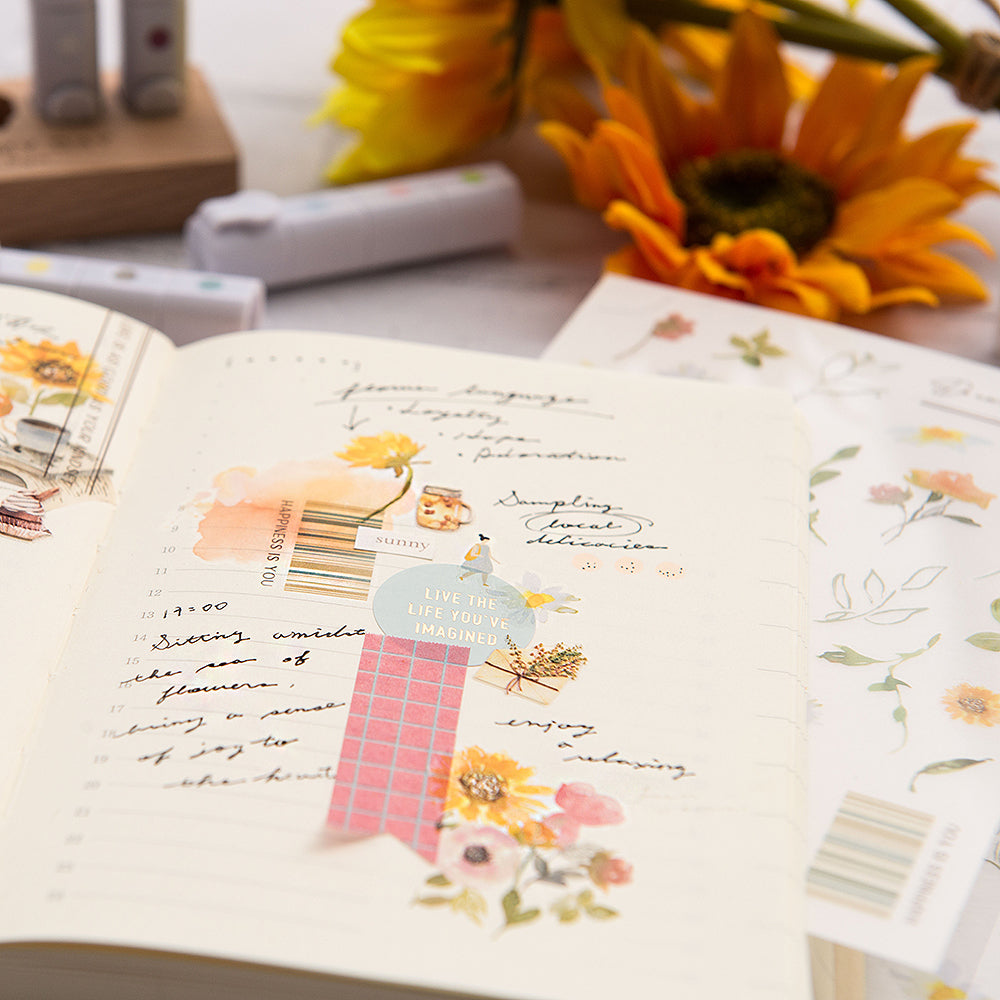 flower language
↓ · Loyalty
· Hope
· Adoration
Sampling
local
delicacies
HAPPINESS IS YOU
sunny
LIVE THE
LIFE YOU'VE
IMAGINED
8
9
10
11
12
13
14
15
16
17
18
19
20
21
22
23
17:00
Sitting amidst
the sea of
flowers,
bring a sense
of joy to
the
enjoy
a
relaxing
HAPPINESS IS YOU